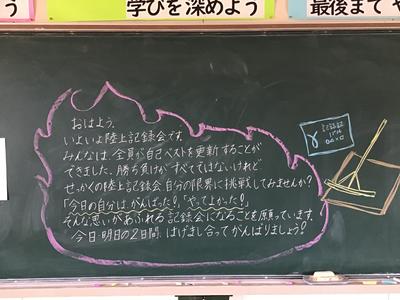 う
学びを深めよう
最後までや
おはよう。
いよいよ陸上記録会です。
みんなは、全員が自己ベストを更新することが
できました。勝ち負けがすべてではないけれど
せっかくの陸上記録会 自分の限界に挑戦してみませんか？
「今日の自分は、がんばった！」「やってよかった！」
そんな思いがあふれる記録会になることを願っています。
今日・明日の2日間、はげまし合ってがんばりましょう！